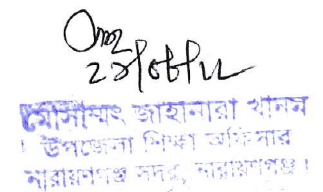 ২১/০৮/১২
মোসাম্মৎ জাহানারা খানম
উপজেলা শিক্ষা অফিসার
নারায়ণগঞ্জ সদর, নারায়ণগঞ্জ।